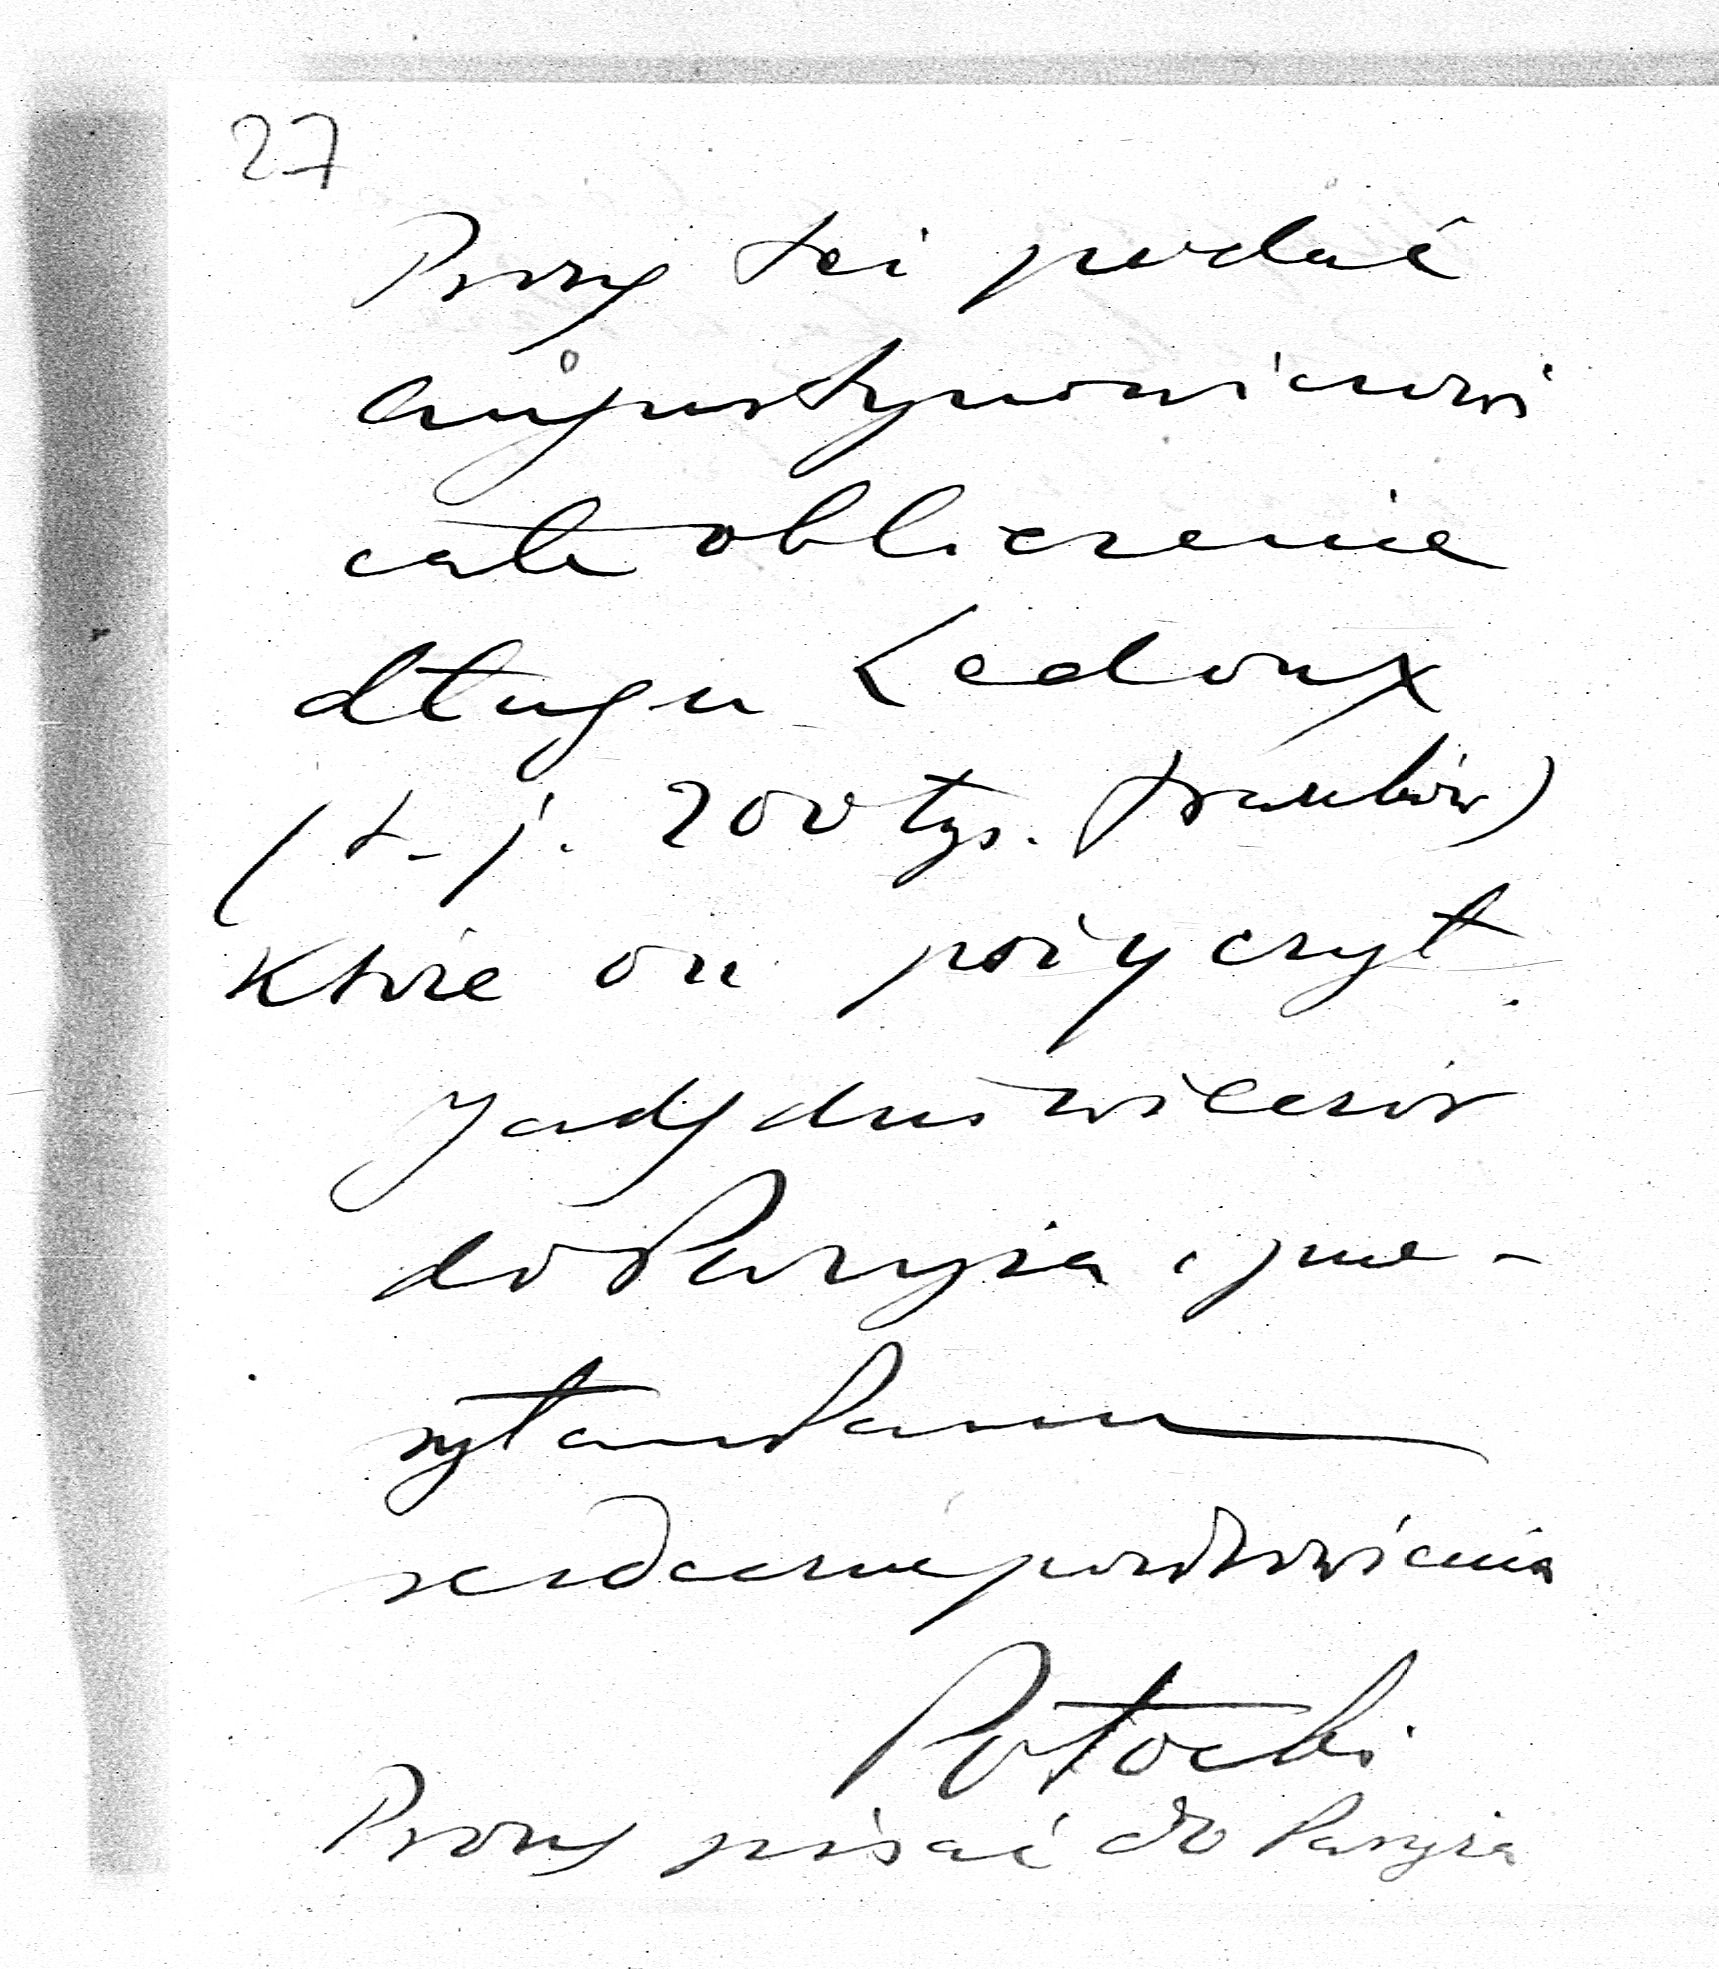 27
Proszę też podać
Augustynowiczowi
całe obliczenie
długu Ledoux
(t. j. 200 tys. franków)
które on pożyczył.
Jadę dziś wieczór
do Paryża i prze-
syłam Panu
serdeczne pozdrowienia
Potocki
Proszę pisać do Paryża